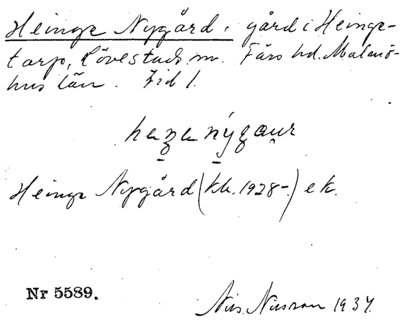 Heinge Nygård: gård i Heinge-
tarp, Lövestads sn. Färs hd. Malmö-
hus län. Fid 1.
Heinge Nygård (kb. 1928-) ek.
Nr 5589.
Nils Nilsson 1937.